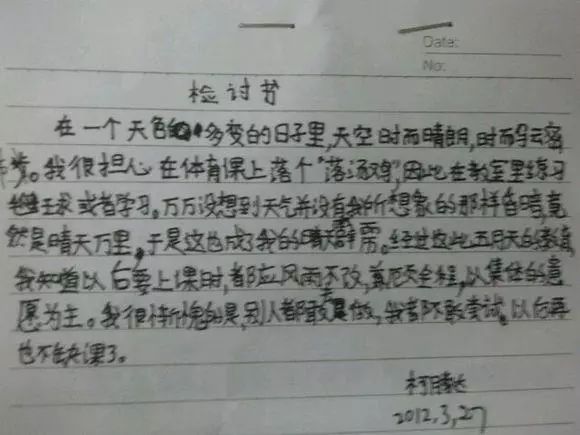 Date:
No:
检讨书
在一个天色多变的日子里,天空时而晴朗,时而乌云密
布。我很担心在体育课上落个"落汤鸡",因此在教室里练习
球或者学习。万万没想到天气并没有我所想象的那样昏暗,竟
然是晴天万里,于是这也成了我的晴天霹雳。经过这此五月天的教育,
我知道以后要上课时,都应风雨不改,以集体的意
愿为主。我很惭愧的是,别人都敢做,我却不敢尝试。以后再
也不缺课了。
柯腾达
2012,3,27